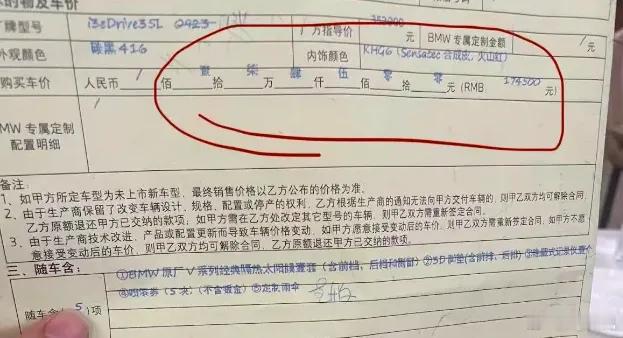 的物及车价
牌型号 i3eDrive35L 0423 厂方指导价 353900 元 BMW 专属定制金额 / 元
外观颜色 碳黑416 内饰颜色 KHG6 (Sensatec 合成皮,火山红)
购买车价 人民币 / 佰 壹 拾 柒 万 肆 仟 伍 佰 零 拾 零 元 (RMB: 174500 元)
MW 专属定制
配置明细
备注:
1、如甲方所定车型为未上市新车型,最终销售价格以乙方公布的价格为准。
2、由于生产商保留了改变车辆设计、规格、配置或停产的权利,乙方根据生产商的通知无法向甲方交付车辆的,则甲乙双方均可解除合同,
乙方原额退还甲方已交纳的款项;如甲方需在乙方处改定其它型号的车辆,则甲乙双方需重新签定合同。
3、由于生产商技术改进、产品或配置更新而导致车辆价格变动,如甲方愿意接受变动后的车价,则甲乙双方需重新签定合同,如甲方不愿
意接受变动后的车价,则甲乙双方均可解除合同,乙方原额退还甲方已交纳的款项。
三、随车含:
①BMW原厂V系列经典隔热太阳膜壹套(含前档,后档和侧窗)②3D脚垫(含前排、后排)③隐藏式记录仪壹个
随车含(5)项 ④喷漆券(5次,(不含钣金)⑤定制雨伞